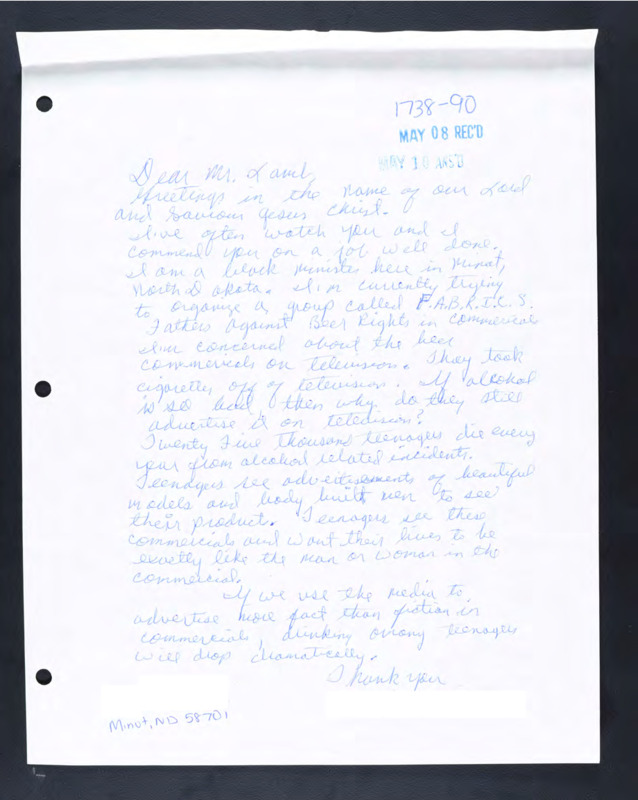 1738-90
MAY 08 REC'D
MAY 10 ANS'D
Dear Mr. Lamb,
Greetings in the name of our Lord
and Saviour Jesus Christ.
I've often watch you and I
commend you on a job well done.
I am a black minister here in Minot,
North Dakota. I'm currently trying
to organize a group called F.A.B.R.I.C.S.
Fathers Against Beer Rights in commercials
I'm concerned about the beer
commericals on television. They took
cigarettes off of television. If alcohol
is so bad then why do they still
advertise it on television?
Twenty Five thousand teenagers die every
year from alcohol related incidents.
Teenagers see advertisements of beautiful
models and body built men to see
their product. Teenagers see these
commercials and want their lives to be
exactly like the man or woman in the
commercial.
If we use the media to
advertise more fact than fiction in
commercials, drinking among teenagers
will drop dramatically.
Thank you
Minot, ND 58701